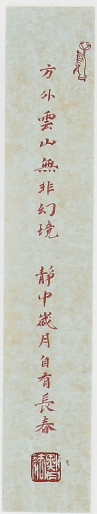 方外雲山無非幻境 靜中歲月自有長春